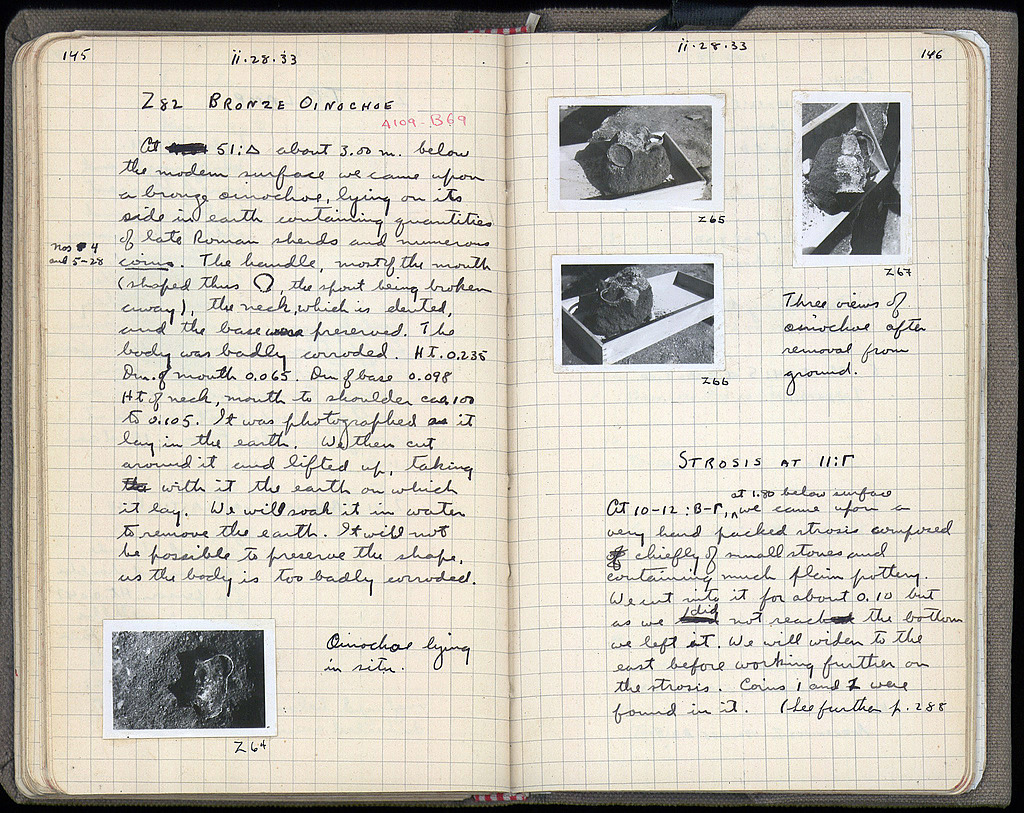 145
ii·28·33
Z82 BRONZE OINOCHOE
A109-B69
At 51:Δ about 3.00 m. below
the modern surface we came upon
a bronze oinochoe, lying on its
side in earth containing quantities
of late Roman sherds and numerous
Nos 4
and 5-28
coins. The handle, most of the mouth
(shaped thus , the spout being broken
away), the neck, which is dented,
and the base preserved. The
body was badly corroded. HT. 0.235
Dm. of mouth 0.065. Dm of base 0.098
Ht of neck, mouth to shoulder ca 0.100
to 0.105. It was photographed as it
lay in the earth. We then cut
around it and lifted up, taking
with it the earth on which
it lay. We will soak it in water
to remove the earth. It will not
be possible to preserve the shape,
as the body is too badly corroded.
Oinochoe lying
in situ.
Z64
ii·28·33
146
Z65
Z67
Z66
Three views of
oinochoe after
removal from
ground.
STROSIS AT 11:Γ
at 1.80 below surface
At 10-12:B-Γ, we came upon a
very hard packed strosis composed
chiefly of small stones and
containing much plain pottery.
We cut into it for about 0.10 but
as we did not reach the bottom
we left it. We will widen to the
east before working further on
the strosis. Coins 1 and 2 were
found in it. (See further p. 288